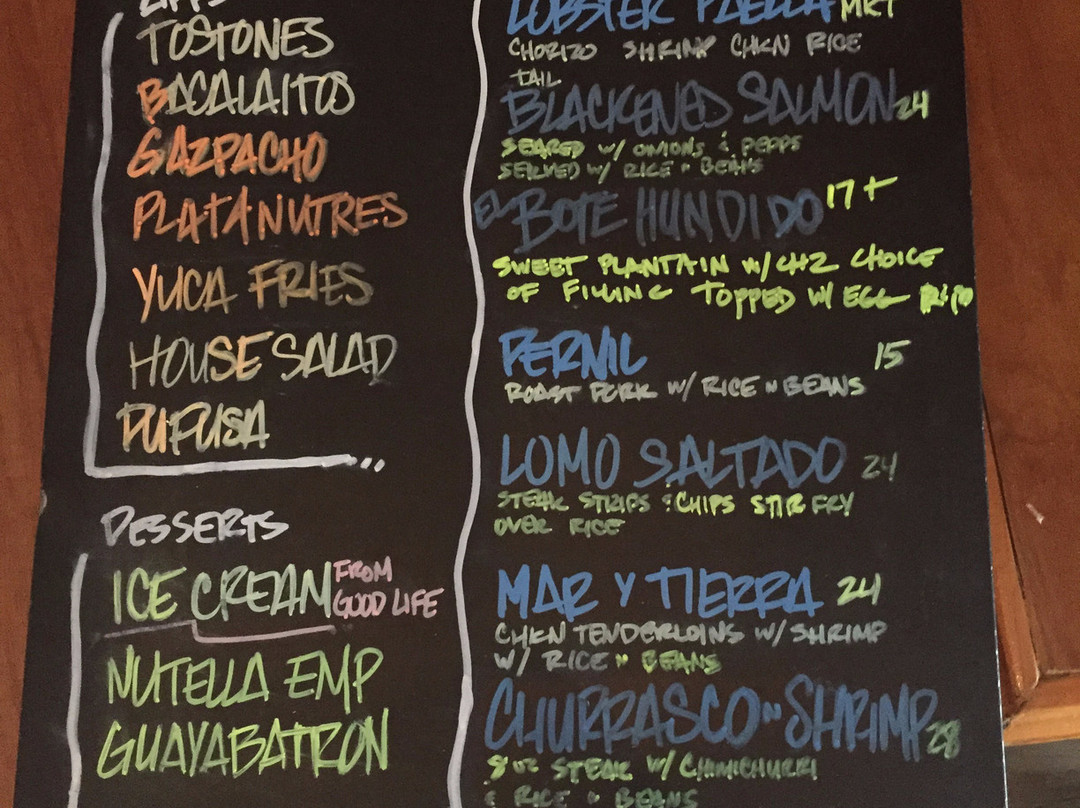 TOSTONES
BACALAITOS
GAZPACHO
PLATANUTRES
YUCA FRIES
HOUSE SALAD
PUPUSA
DESSERTS
ICE CREAM FROM
GOOD LIFE
NUTELLA EMP
GUAYABATRON
LOBSTER PAELLA MRT
CHORIZO SHRIMP CHKN RICE
TAIL
BLACKENED SALMON 24
SEARED W/ ONIONS & PEPPS
SERVED W/ RICE N BEANS
EL BOTE HUNDIDO 17+
SWEET PLANTAIN W/ CHZ CHOICE
OF FILLING TOPPED W/ EGG
PERNIL 15
ROAST PORK W/ RICE N BEANS
LOMO SALTADO 24
STEAK STRIPS & CHIPS STIR FRY
OVER RICE
MAR Y TIERRA 24
CHKN TENDERLOINS W/ SHRIMP
W/ RICE N BEANS
CHURRASCO N SHRIMP 28
8 OZ STEAK W/ CHIMICHURRI
& RICE N BEANS